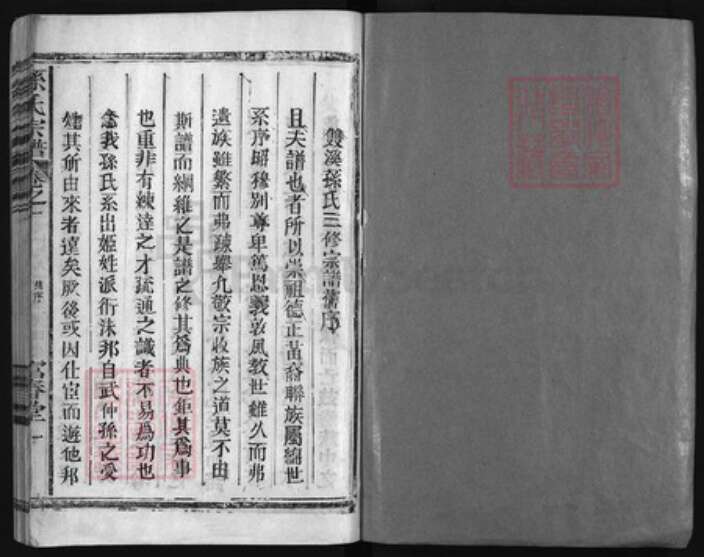 雙溪孫氏三修宗譜舊序
且夫譜也者所以崇祖德正苗裔聯族屬綿世
系序昭穆別尊卑篤恩義敦風教世雖久而弗
遺族雖繁而弗疎舉凡敬宗收族之道莫不由
斯譜而綱維之是譜之修其爲典也鉅其爲事
也重非有練達之才疏通之識者不易爲功也
念我孫氏系出姬姓派衍洙邦自武仲孫之受
其所由來者遠矣厥後或因仕宦而遊他邦
孫氏宗譜 卷之一
舊序
富春堂 一